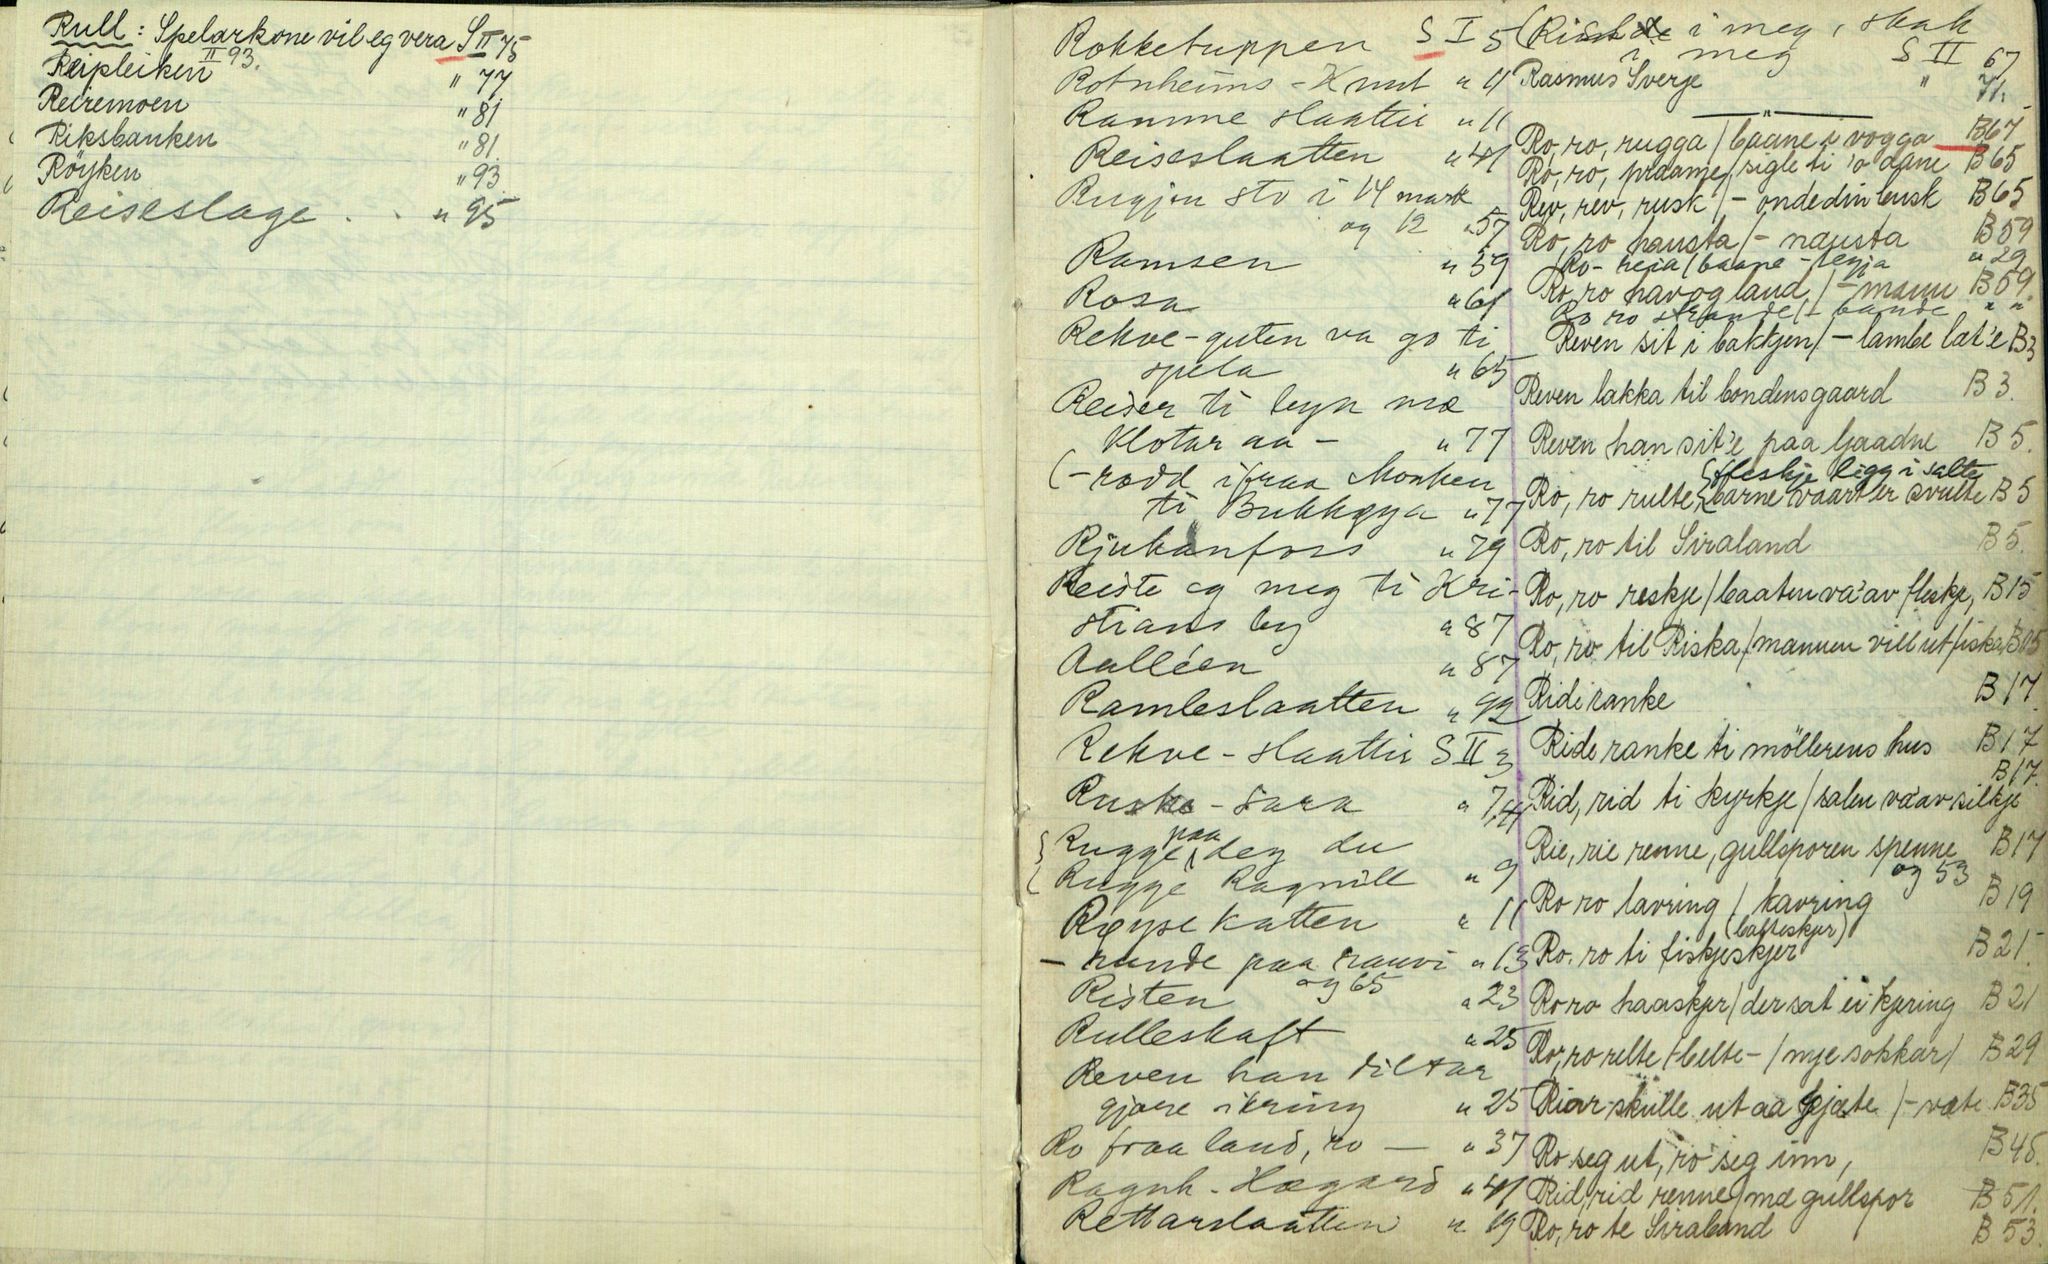 Rull: Spelarkone vil eg vera S II 75
II 93.
Reipleiken " 77
Reiremoen " 81
Riksbanken " 81
Röyken " 93
Reiseslage . . " 95
Rokketuppen S I 5
Rotnheims-Knut " 11
Ramme slaattir " 11
Reiseslaatten " 41
Rugjen sto i 14 mark
og 12 " 57
Ramsen " 59
Rosa " 61
Rekve-guten va go ti
spela " 65
Reiser ti byn mæ
Klotar aa - " 77
(- rodd ifraa Monken
ti Bukkøya " 77
Rjukanfoss " 79
Reiste eg meg ti Kri-
stians by " 87
Aalléen " 87
Ramleslaatten " 92
Rekve-slaattir S II 3
Ruska-Sara " 7,41
Rugge paa deg du
Rugge Ragnill " 9
Røyse katten " 11
- runde paa rauvi " 13
og 65
Risten " 23
Rulleskaft " 25
Reven han diltar
gjare ikring " 25
Ro fraa land, ro — " 37
Ragnh. Høgard " 41
Rettarslaatten " 19
i meg, skak
i meg S II 67
Rasmus Sverge " 71.
Ro, ro, rugga / baane i vogga B67
Ro, ro, praamje / sigle ti o dane B65
Rev, rev, rusk / - ondedin busk B65
Ro, ro hausta / - nausta B59
Ro - reia / baane - legja " 29
Ro, ro hav og land / - mann B59.
Ro ro strande / - bande " "
Reven sit i bakkjen / - lambe læt'e B3
Reven lakka til bondens gaard B3.
Reven han sit'e paa ljaadne B5.
fleskje ligg i salte
Ro, ro rulte, barne vaart er svulte B5
Ro, ro til Siraland B5.
Ro, ro reskje / baaten va' av fleskje, B15
Ro, ro til Riska / mannen vill ut fiska B15
Ridi ranke B17.
Ride ranke ti möllerens hus B17
B17.
Rid, rid ti kyrkje / salen va' av silkje
Rie, rie renne, gullsporen spenne B17
og 53
Ro ro lavring / kavring B19
Ro. ro ti fiskjeskjer B21.
Ro ro haaskjer / der sat ei kjering B21
Ro, ro relte / - belte - / nye sokkar / B29
Riar skulle ut aa gjæte / - væte B35
Ro seg ut, ro seg inn, B45.
Rid, rid renne / mæ gullspor B51.
Ro, ro te Siraland B53.